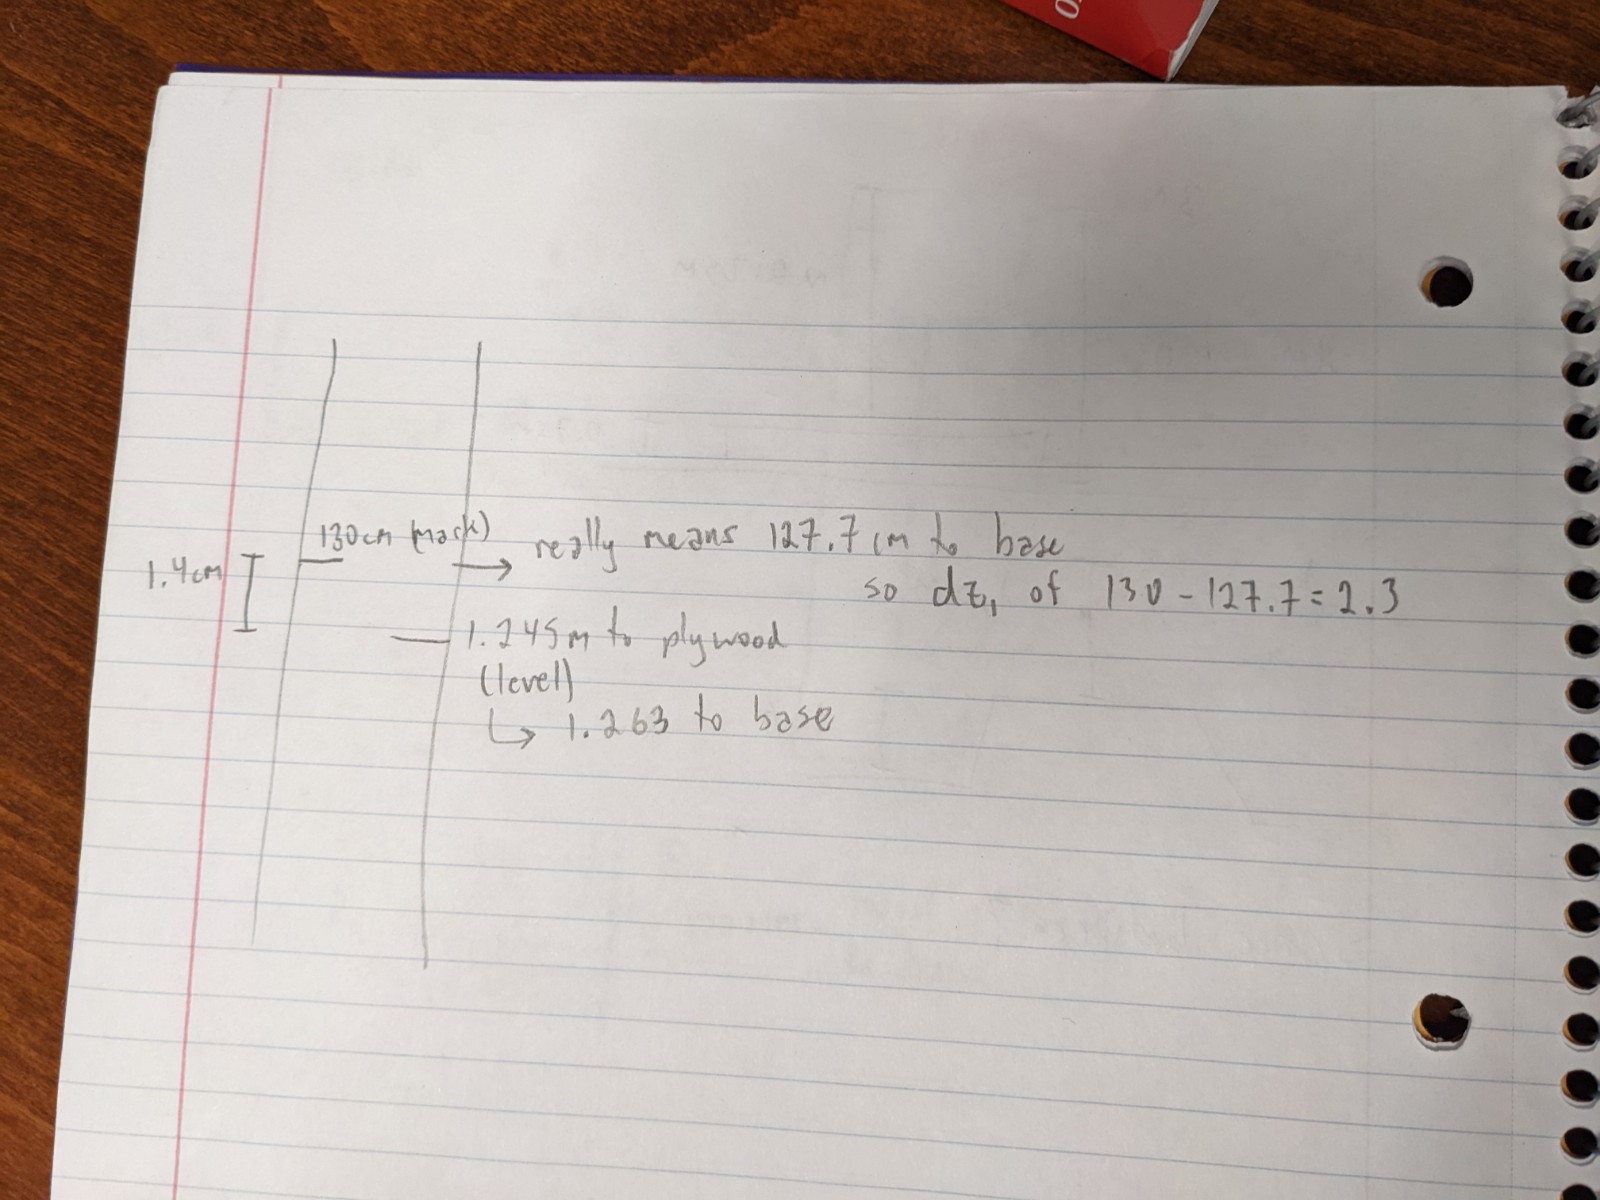 130cm (mark)
1.4cm
really means 127.7cm to base
so dz, of 130 - 127.7 = 2.3
1.245m to plywood
(level)
↳ 1.263 to base